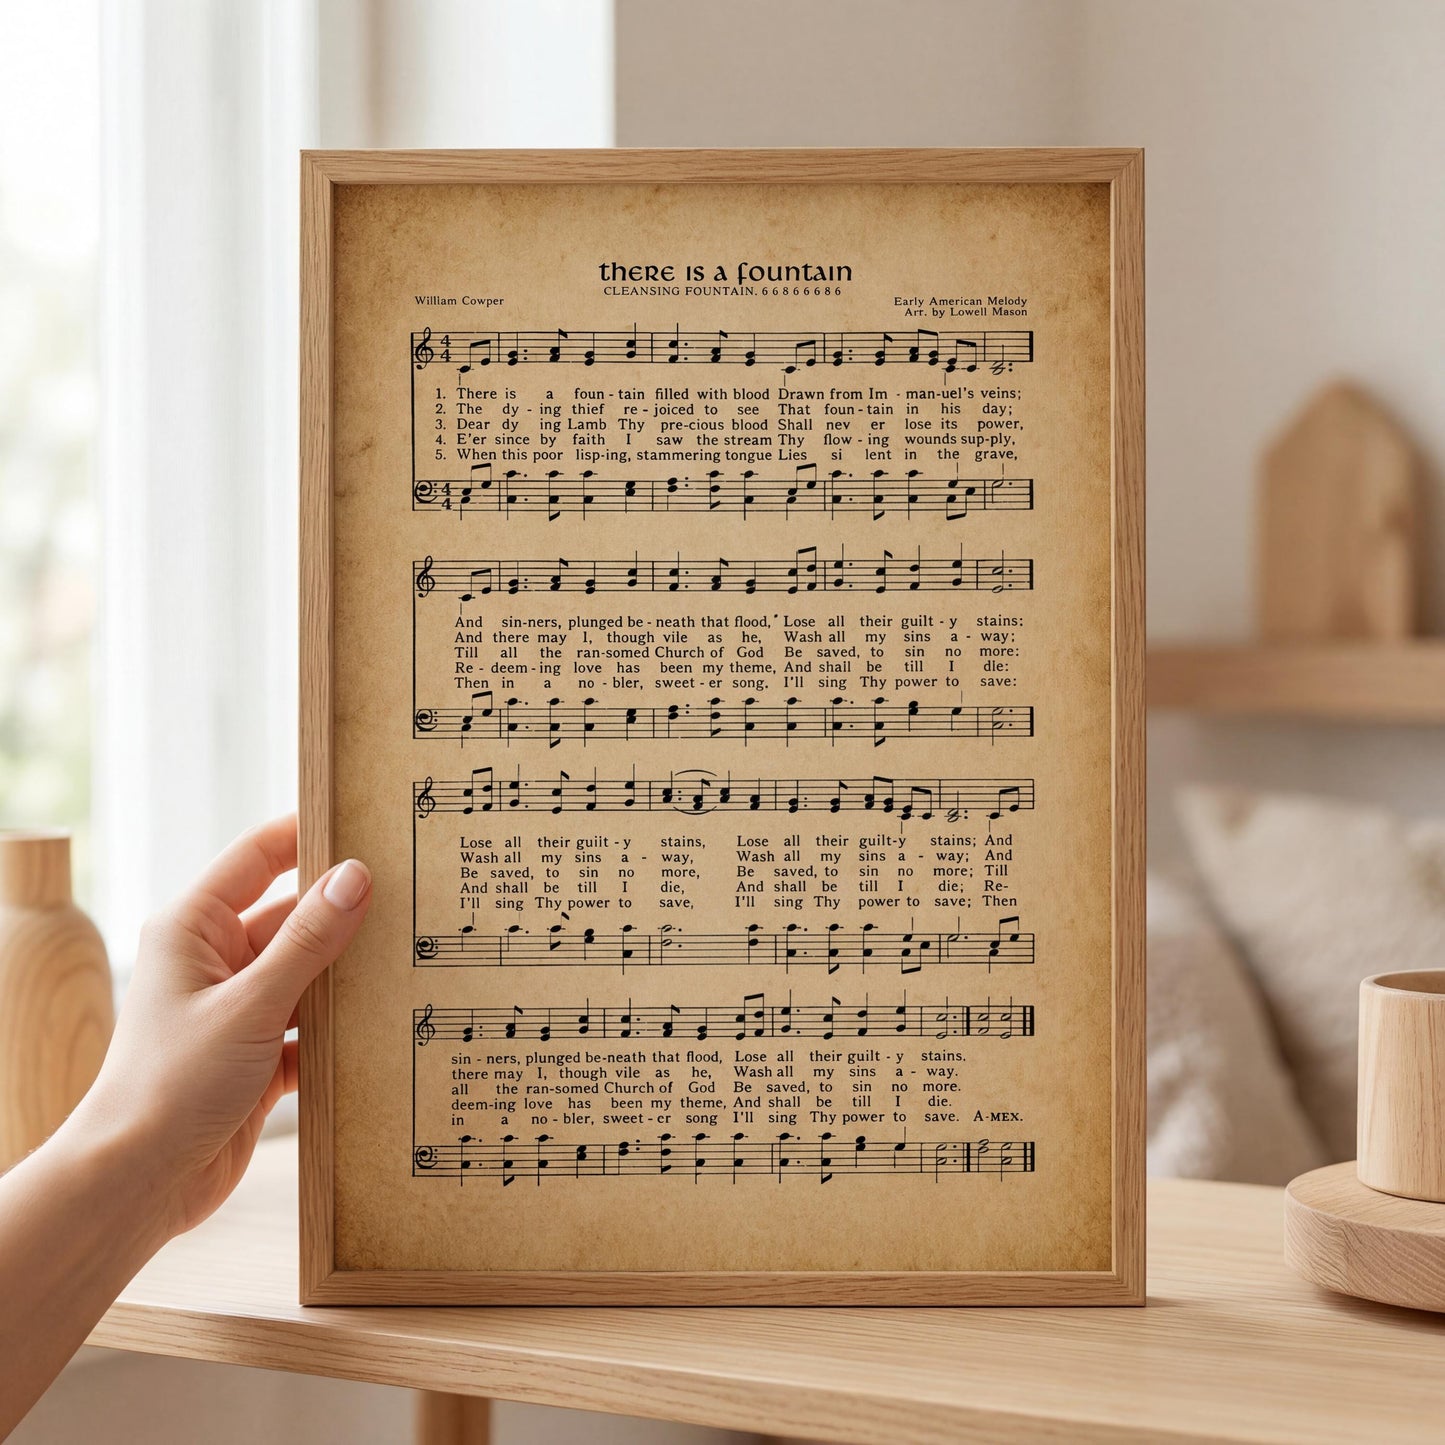 there is a fountain
CLEANSING FOUNTAIN. 6 6 8 6 6 6 8 6
William Cowper
Early American Melody
Arr. by Lowell Mason
4 4
1. There is a foun - tain filled with blood Drawn from Im - man-uel's veins;
2. The dy - ing thief re - joiced to see That foun - tain in his day;
3. Dear dy ing Lamb Thy pre-cious blood Shall nev er lose its power,
4. E'er since by faith I saw the stream Thy flow - ing wounds sup-ply,
5. When this poor lisp-ing, stammering tongue Lies si lent in the grave,
4 4
And sin-ners, plunged be - neath that flood, Lose all their guilt - y stains:
And there may I, though vile as he, Wash all my sins a - way;
Till all the ran-somed Church of God Be saved, to sin no more:
Re - deem - ing love has been my theme, And shall be till I die:
Then in a no - bler, sweet - er song. I'll sing Thy power to save:
Lose all their guilt - y stains, Lose all their guilt-y stains; And
Wash all my sins a - way, Wash all my sins a - way; And
Be saved, to sin no more, Be saved, to sin no more; Till
And shall be till I die, And shall be till I die; Re-
I'll sing Thy power to save, I'll sing Thy power to save; Then
sin - ners, plunged be-neath that flood, Lose all their guilt - y stains.
there may I, though vile as he, Wash all my sins a - way.
all the ran-somed Church of God Be saved, to sin no more.
deem-ing love has been my theme, And shall be till I die.
in a no - bler, sweet - er song I'll sing Thy power to save. A-MEX.